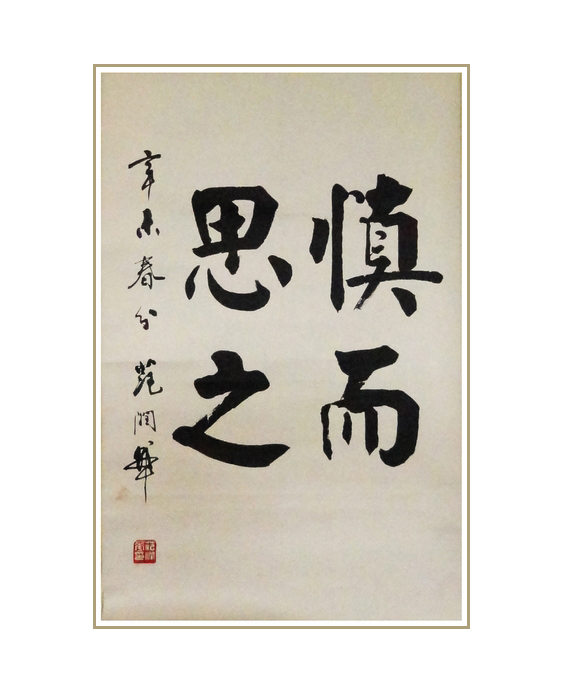 慎而
思之
辛未春分范润华